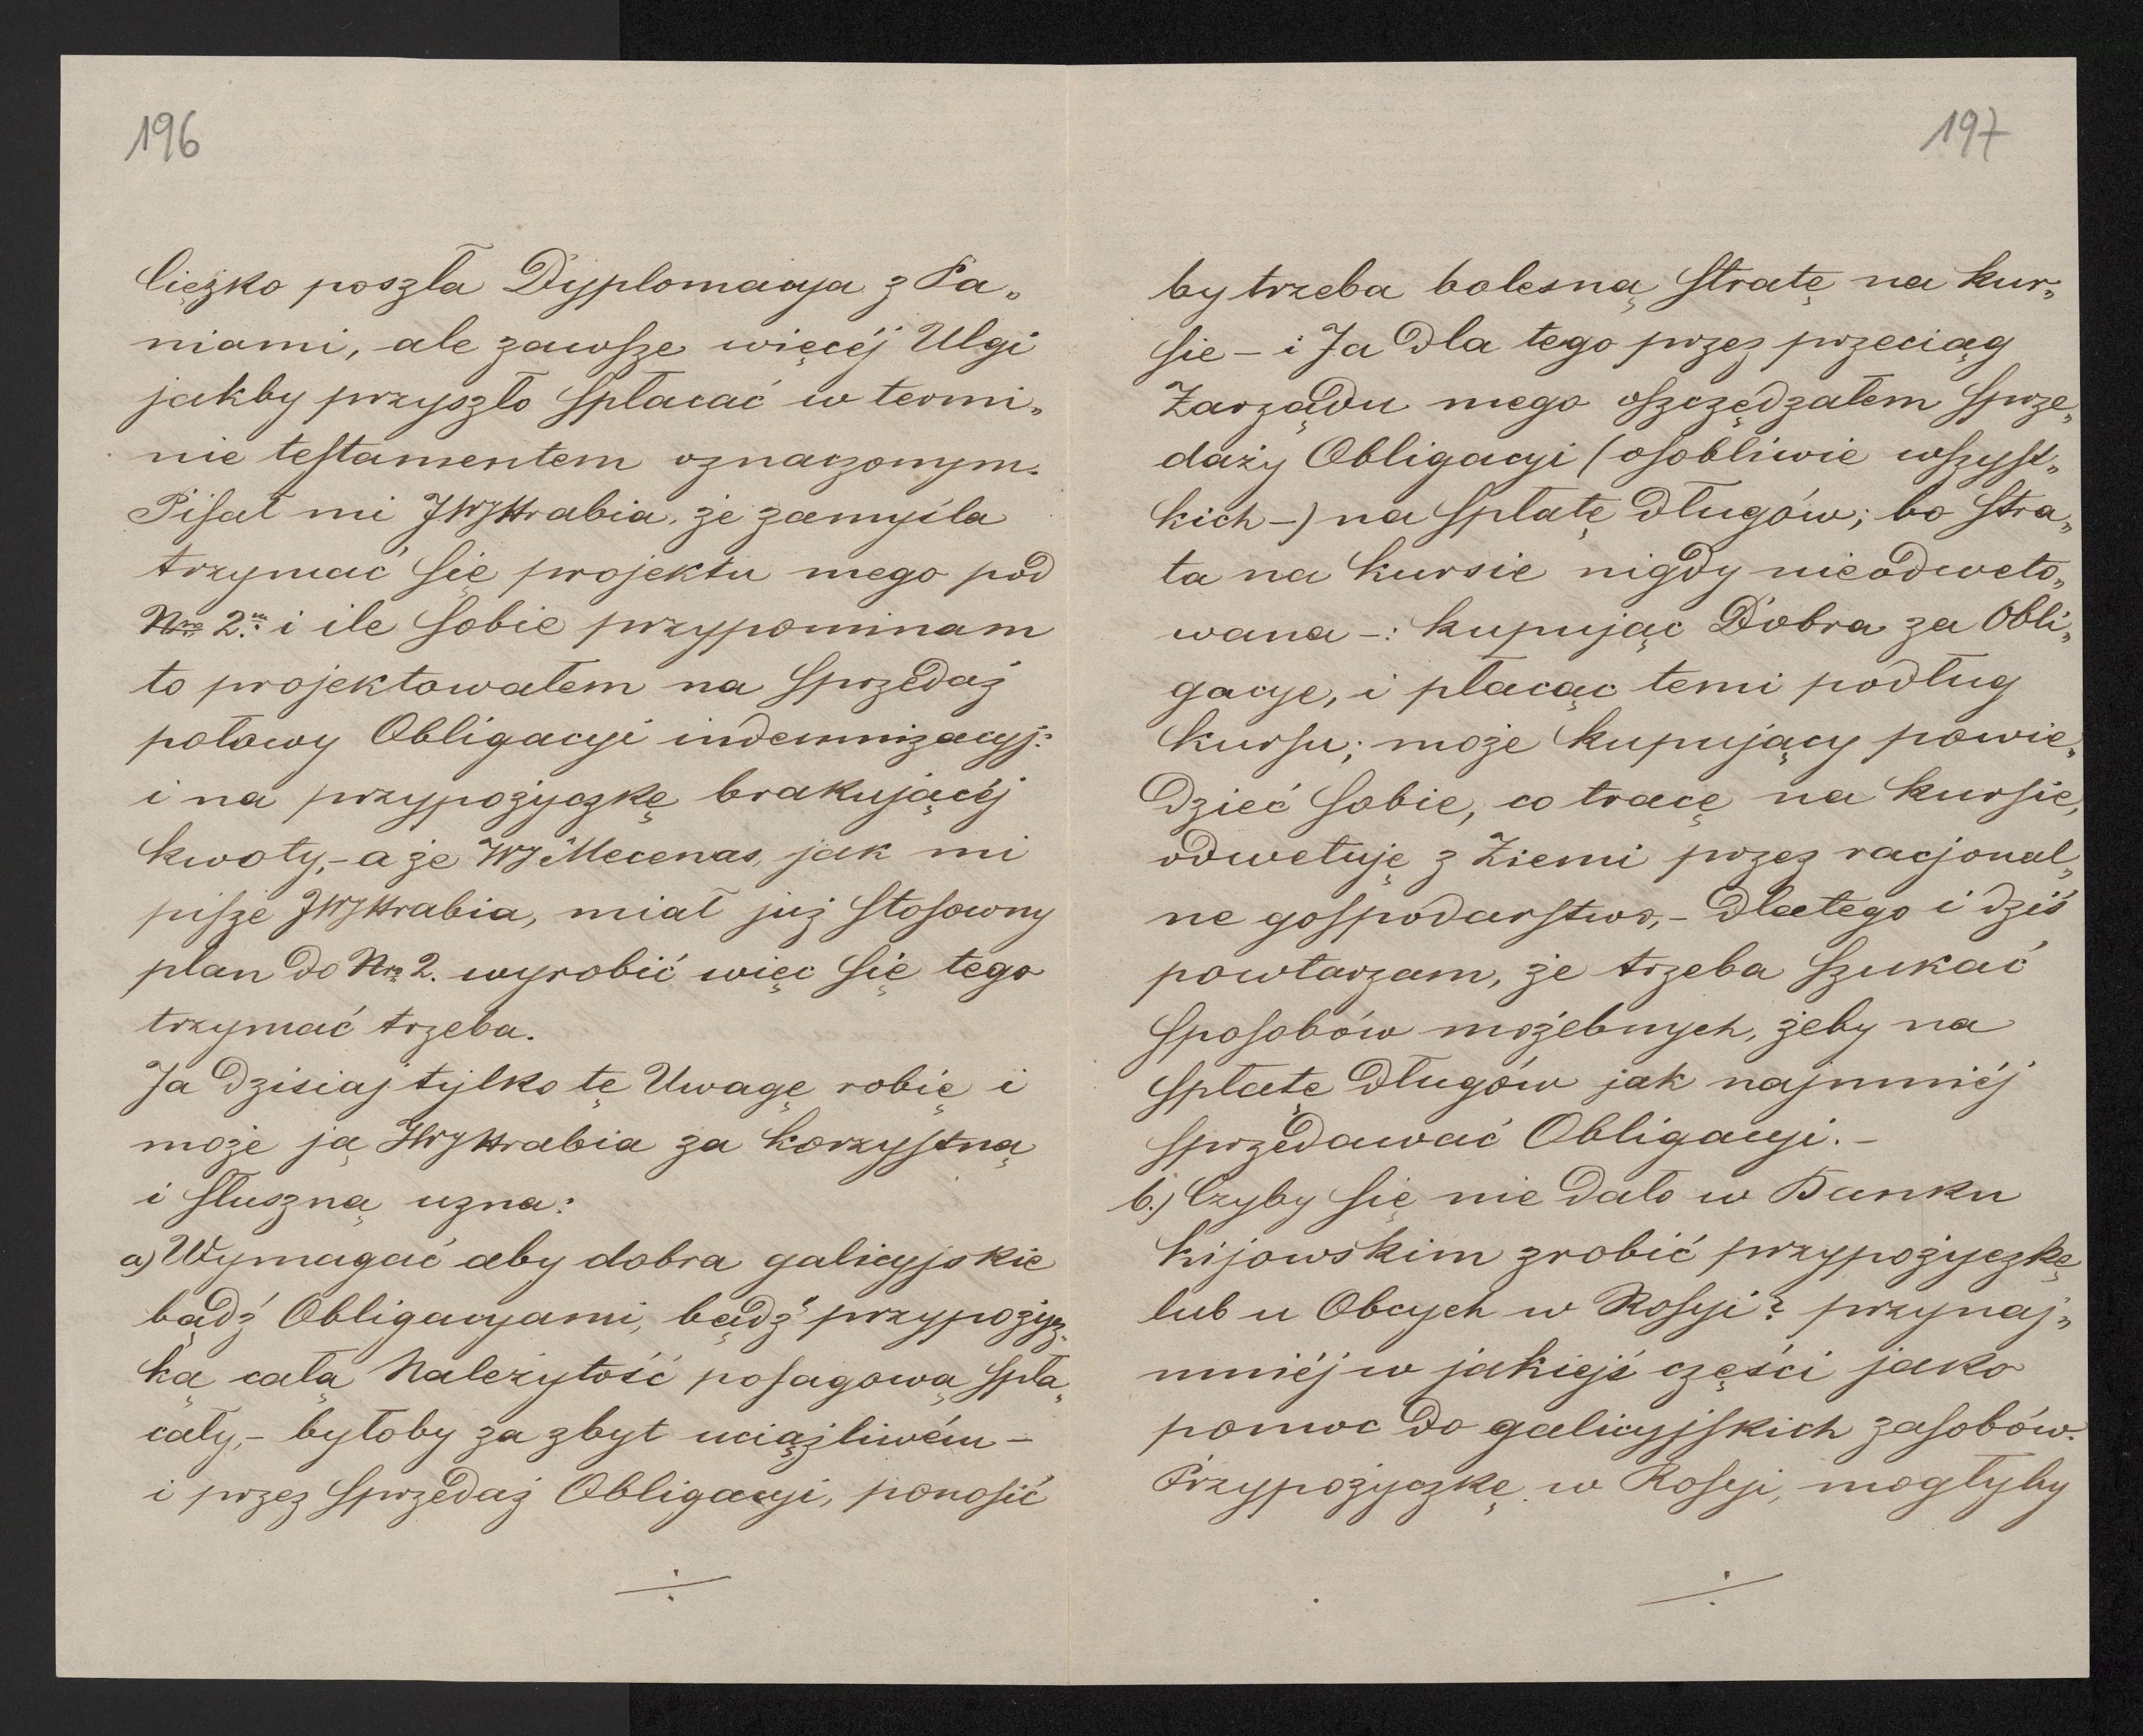 196
Ciężko poszła Dyplomacyja z Pa„
niami, ale zawsze więcéj Ulgi
jakby przyszło spłacać w termi„
nie testamentem oznaczonym.
Pisał mi JWJHrabia, że zamyśla
trzymać się projektu mego pod
Nro 2.m i ile sobie przypominam
to projektowałem na sprzedaż
połowy Obligacyi indemnizacyj:
i na przypożyczkę brakującéj
kwoty,- a że WJMecenas, jak mi
pisze JWJHrabia, miał już stosowny
plan do Nro 2. wyrobić więc się tego
trzymać trzeba.
Ja dzisiaj tylko tę Uwagę robię i
może ją JWJHrabia za korzystną
i słuszną uzna:
a) Wymagać aby dobra galicyjskie
bądź Obligacyami, bądź przypożycz„
ką całą Należytość posagową spła„
cały,- byłoby za zbyt uciążliwém -
i przez sprzedaż Obligacyi, ponosić
÷
197
by trzeba bolesną stratę na kur„
sie - i Ja dla tego przez przeciąg
Zarządu mego oszczędzałem sprze„
daży Obligacyi (osobliwie wszyst„
kich -) na spłatę długów; bo stra„
ta na kursie nigdy nieodweto„
wana -: kupując Dobra za Obli„
gacye, i płacąc temi podług
kursu; może kupujący powie„
dzieć sobie, co tracę na kursie,
odwetuję z Ziemi przez racjonal„
ne gospodarstwo,- dlatego i dziś
powtarzam, że trzeba szukać
sposobów możebnych, żeby na
spłatę długów jak najmniéj
sprzedawać Obligacyi.-
b.) Czyby się nie dało w Banku
kijowskim zrobić przypożyczkę
lub u Obcych w Rosyi? przynaj„
mniéj w jakiejś części jako
pomoc do galicyjskich zasobów.
Przypożyczkę w Rosyi, mogłyby
÷